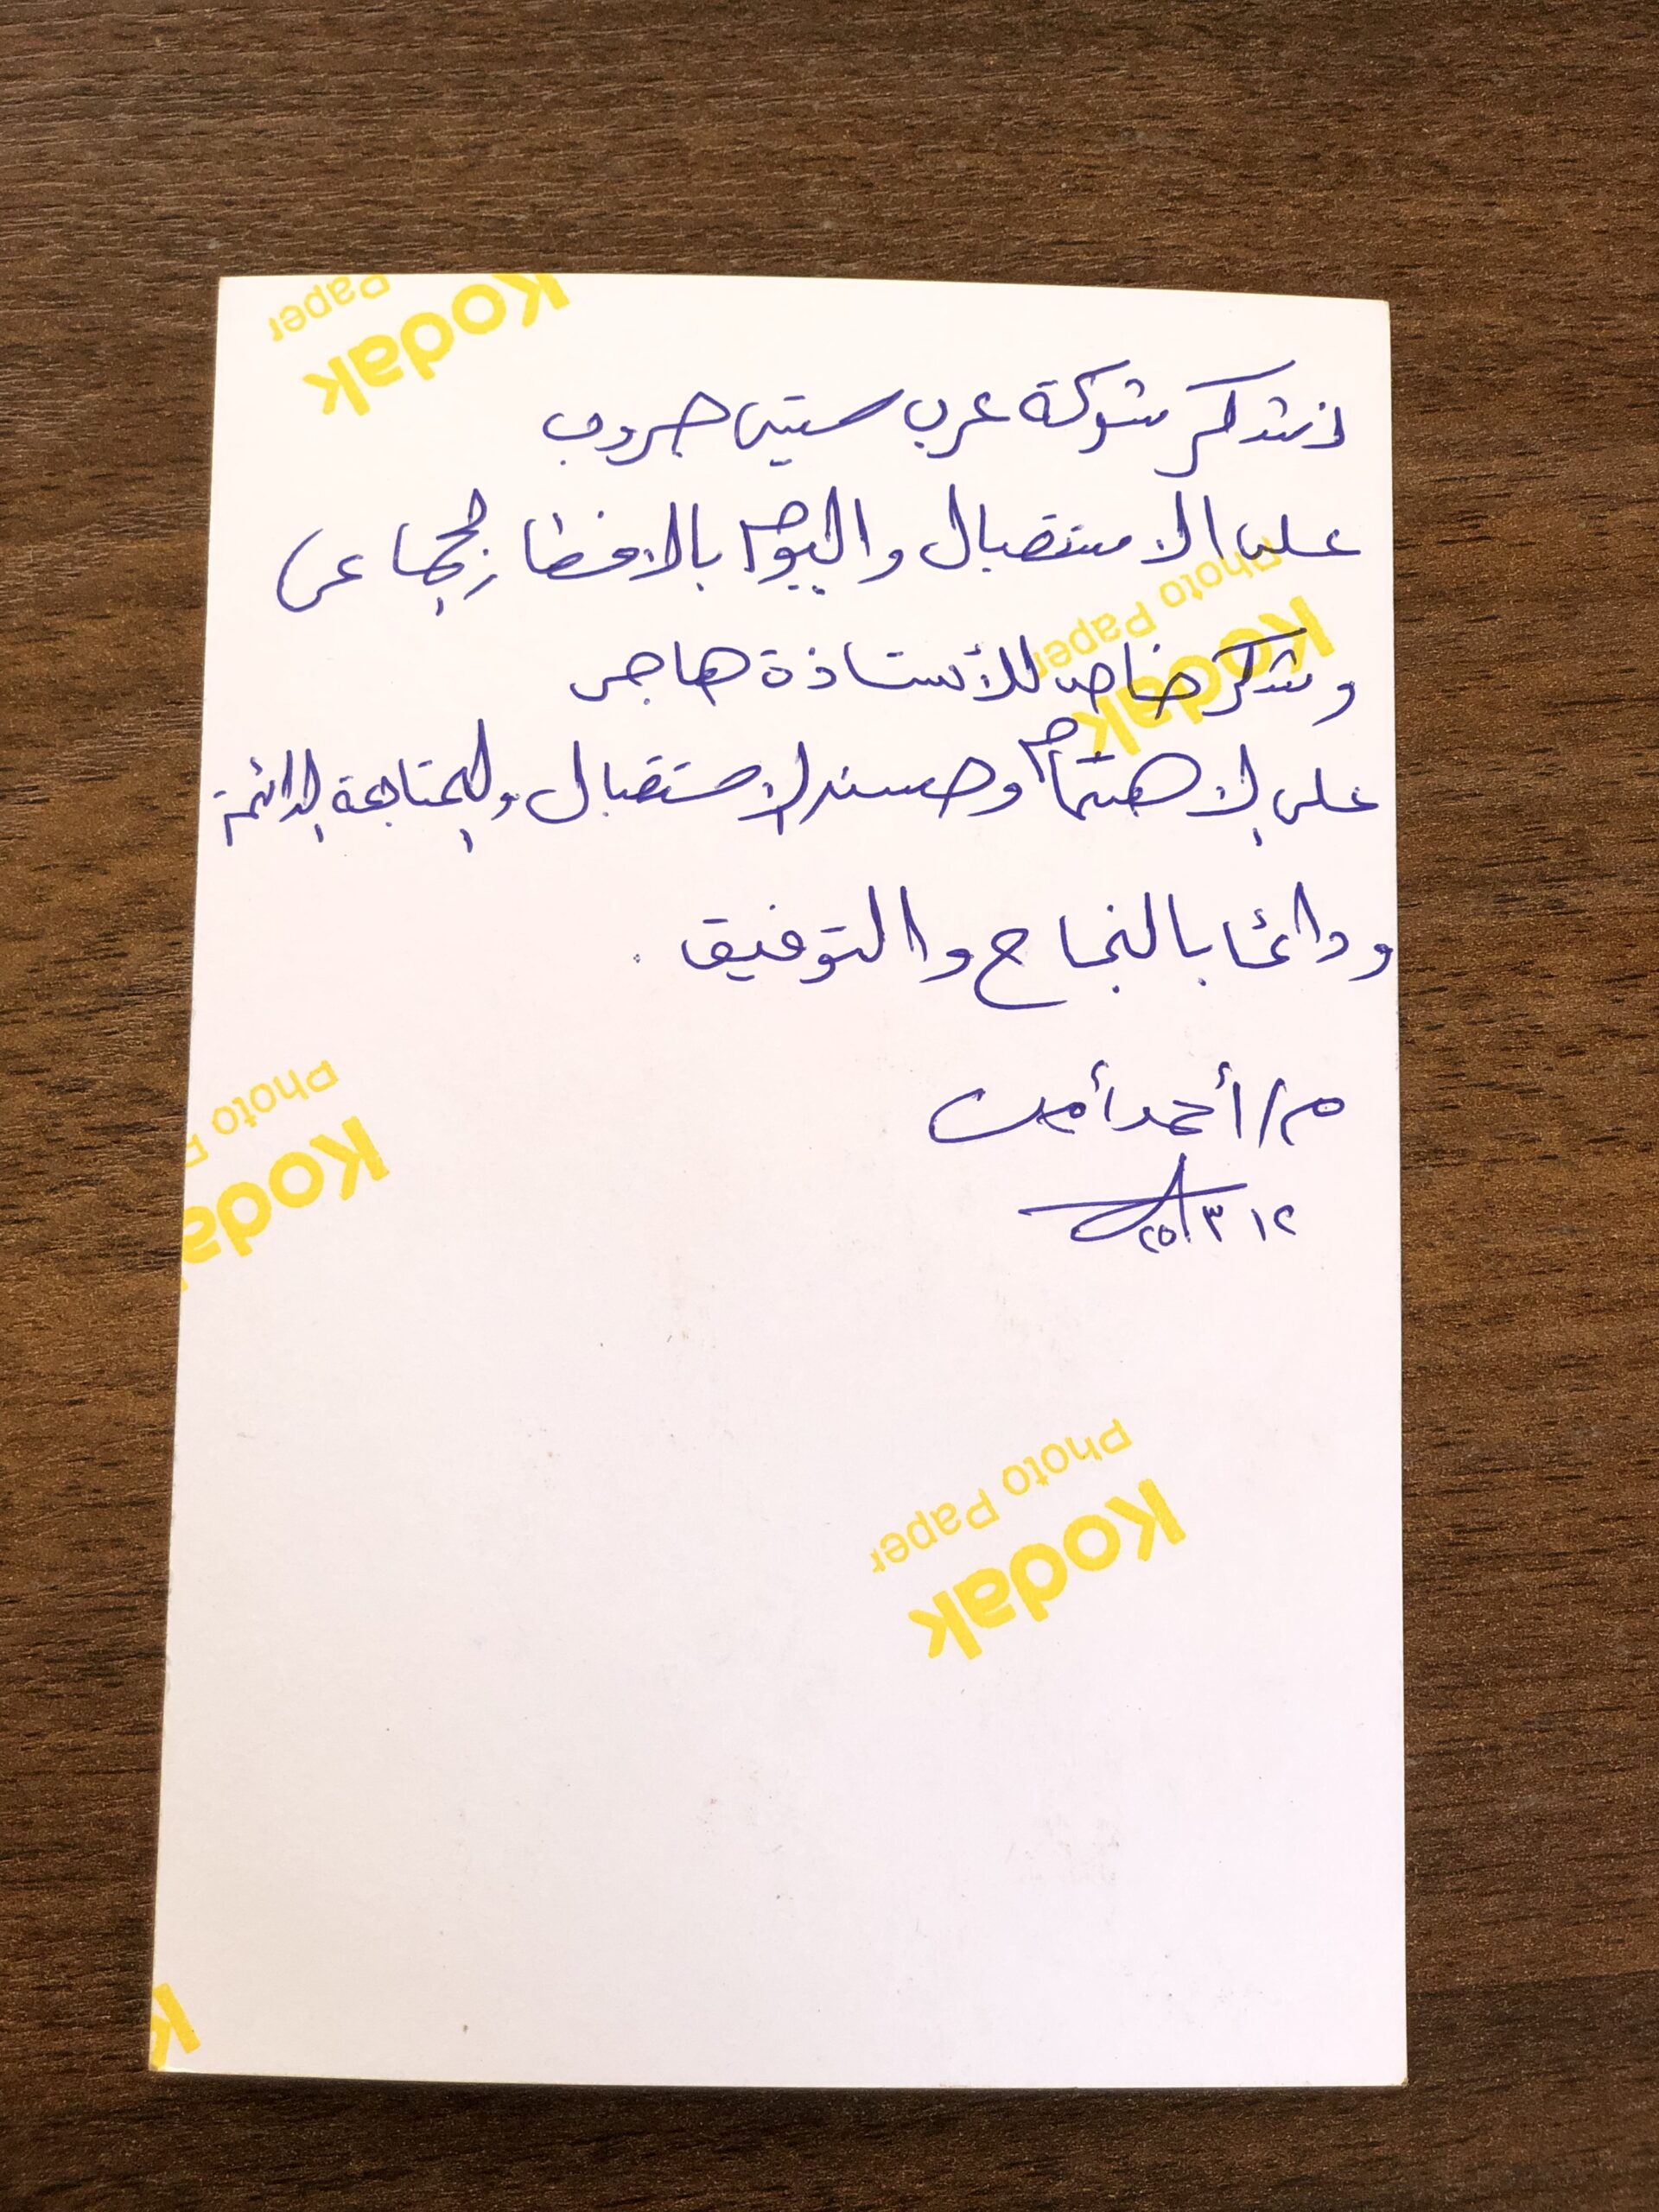 Kodak
Paper
نشكر شركة عرب سيتى جروب
على الاستقبال واليوم بالافطار الجماعى
وشكر خاص للأستاذة هاجر
على الاهتمام وحسن الاستقبال والمتابعة الدائمة
ودائما بالنجاح والتوفيق.
م/ أحمد أمين
١٢ ٣ ٢٥
Kodak
Photo Paper
Koda
Photo P
Kodak
Photo Paper
K